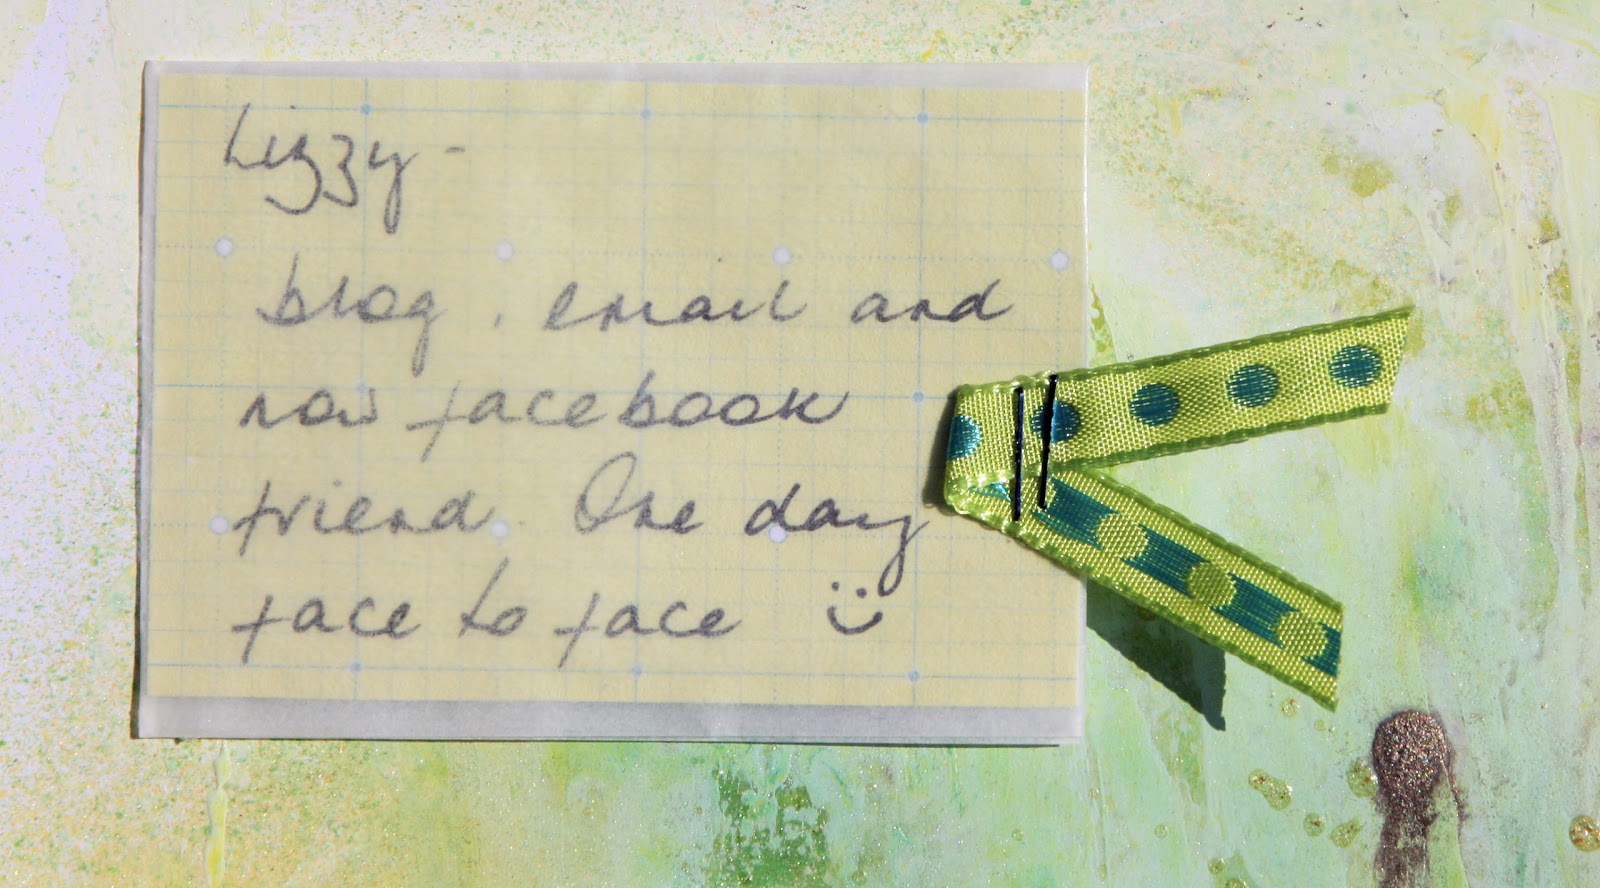 Lizzy -
blog, email and
now facebook
friend. One day
face to face :)